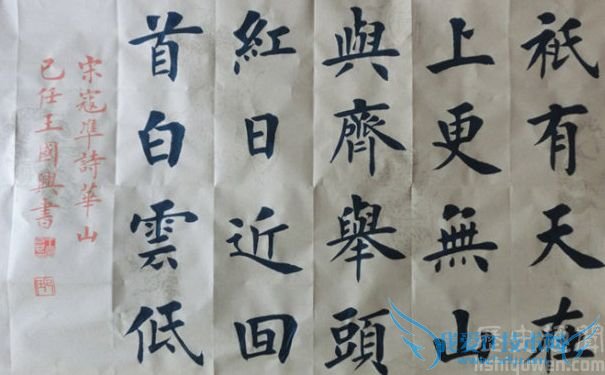 祇有天在
上更無山
與齊舉頭
紅日近回
首白雲低
宋寇准詩華山
己任王國興書
lishiquwen.com